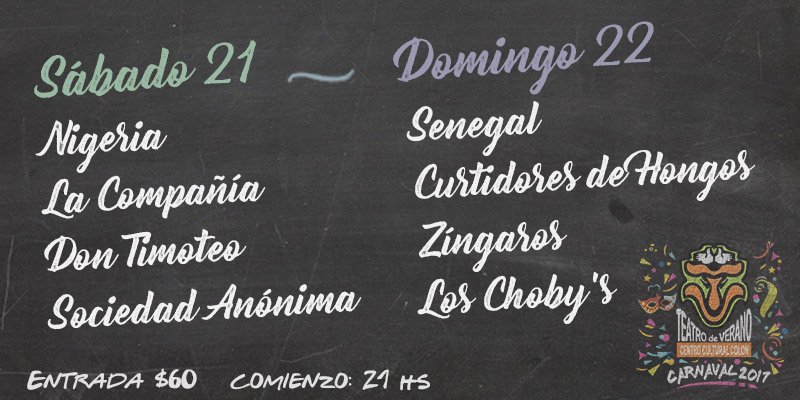 Sábado 21 ~ Domingo 22
Nigeria
La Compañía
Don Timoteo
Sociedad Anónima
Senegal
Curtidores de Hongos
Zíngaros
Los Choby's
TEATRO de VERANO
CENTRO CULTURAL COLON
CARNAVAL 2017
ENTRADA $60 COMIENZO: 21 HS